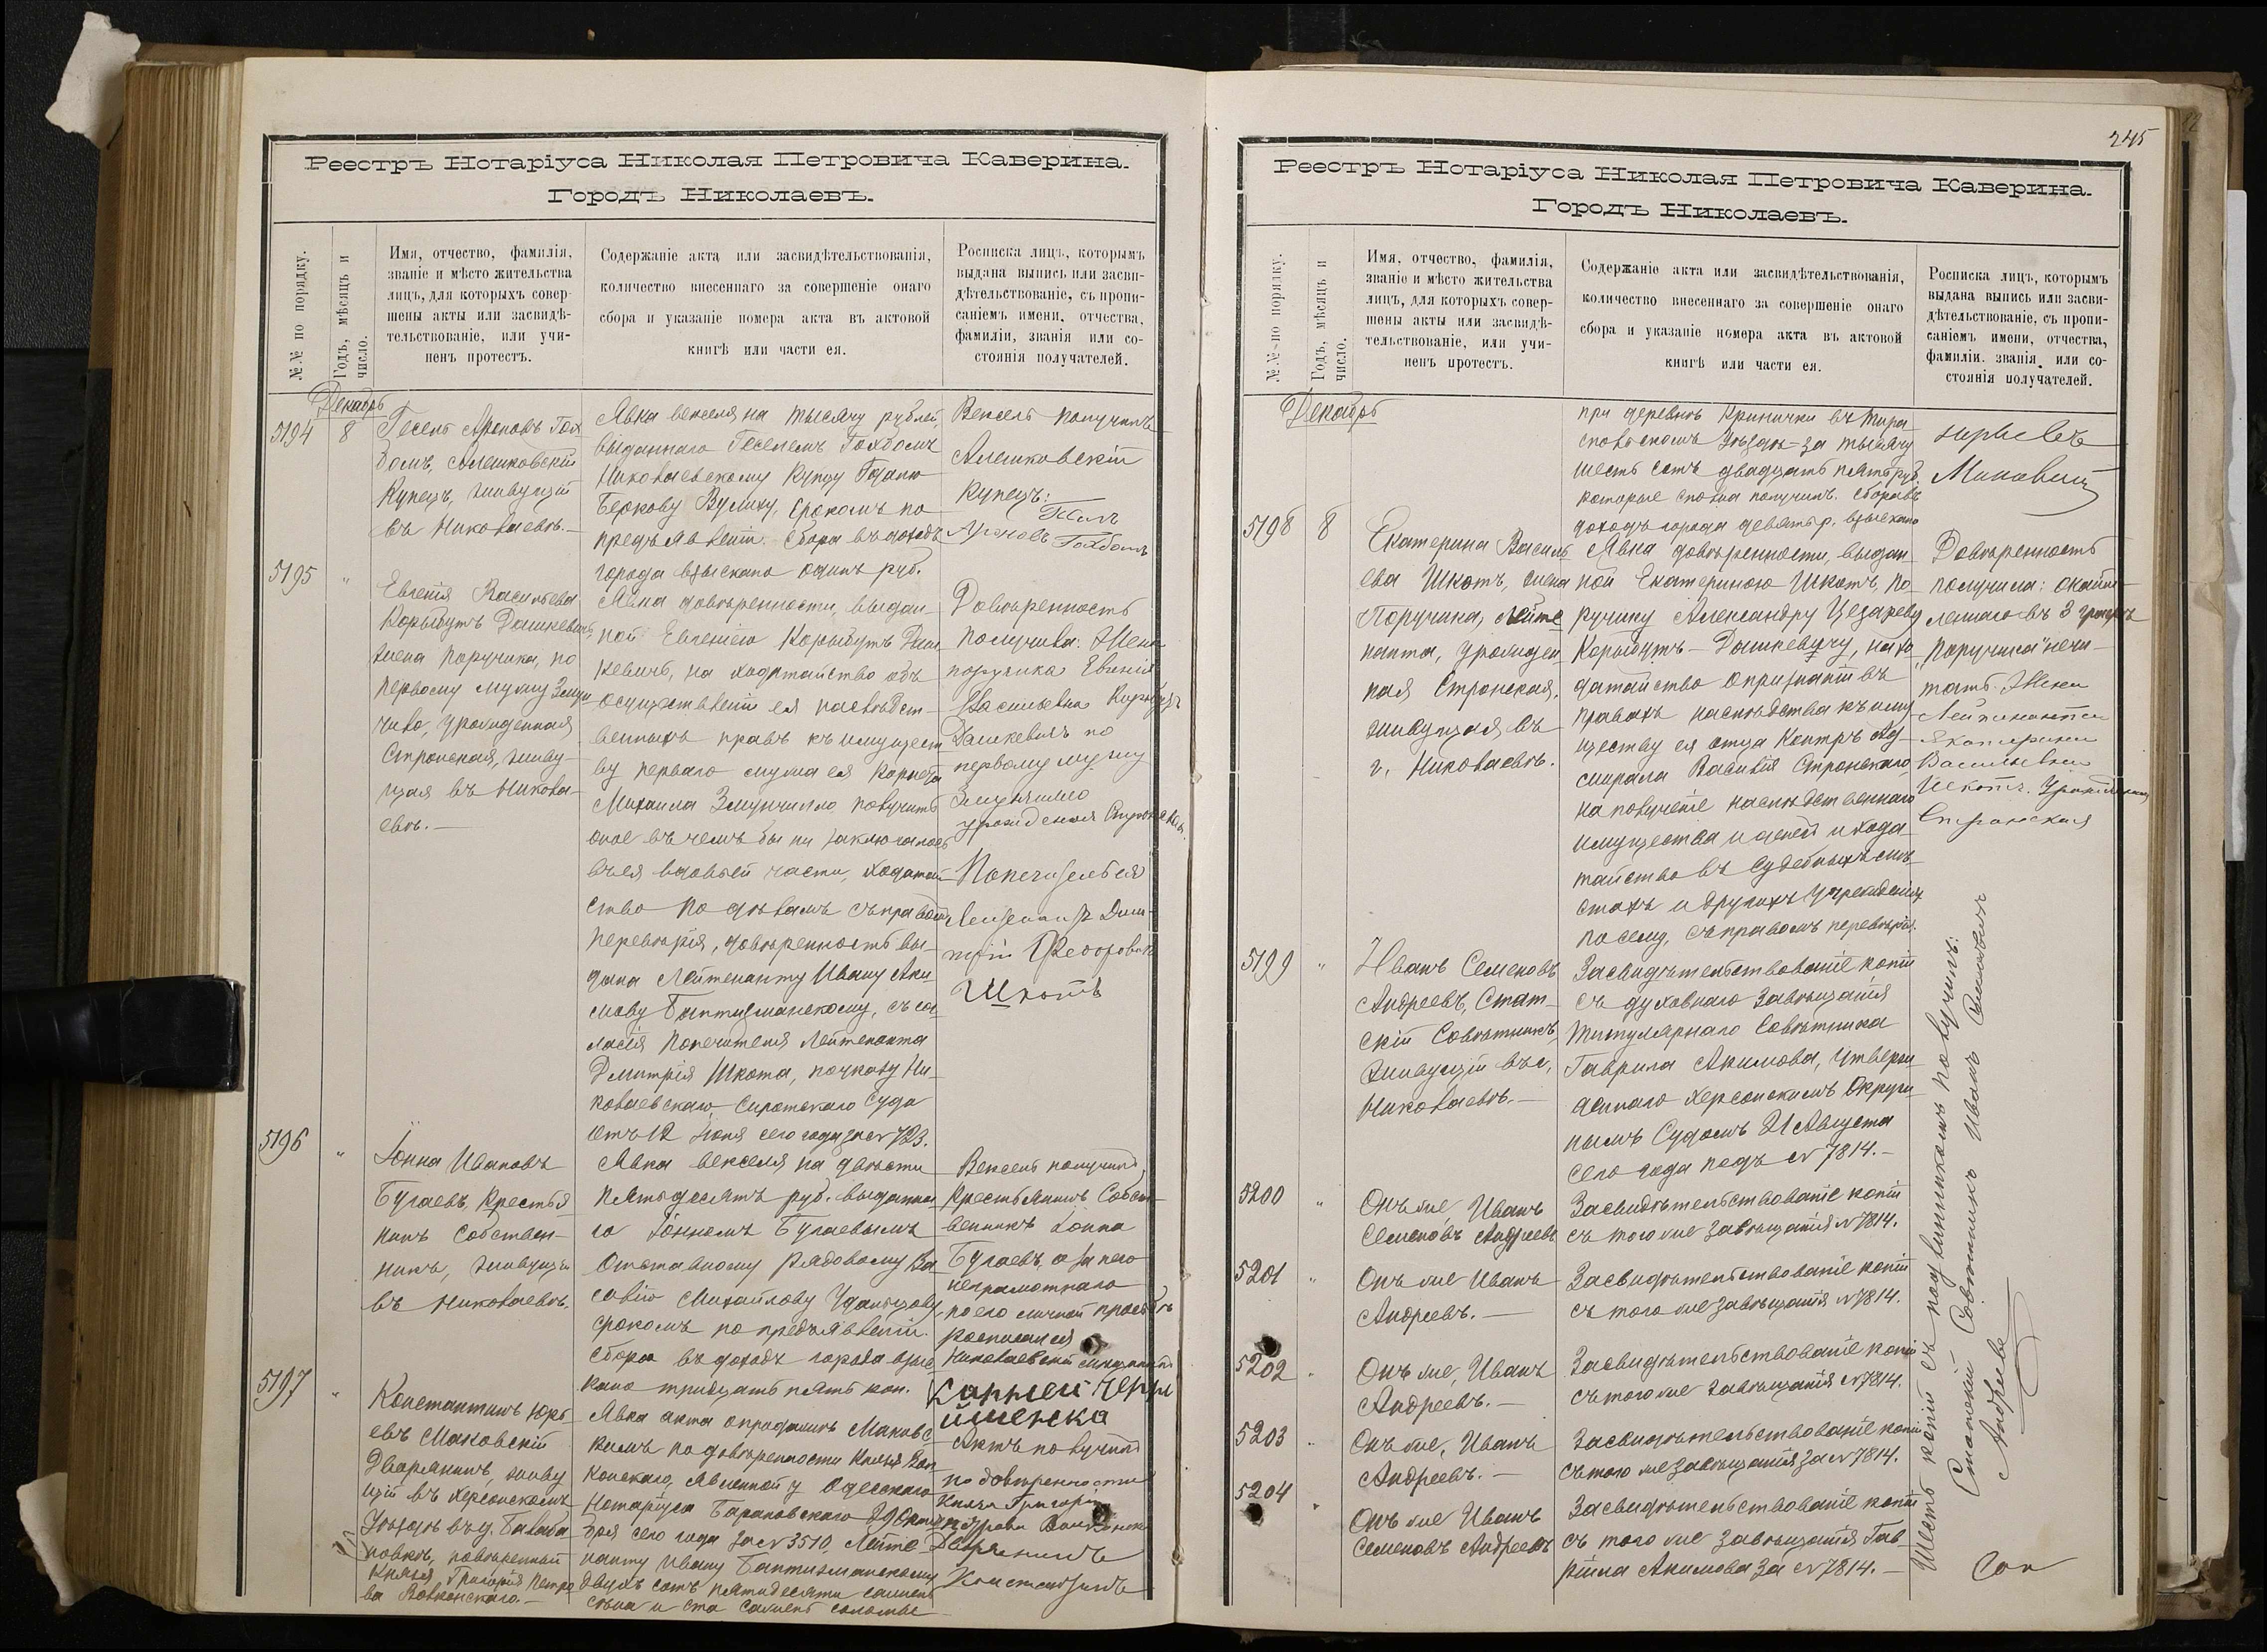 Реестръ Нотаріуса Николая Петровича Каверина.
Городъ Николаевъ.
№№ по порядку.
Годъ, мѣсяцъ и
число.
Имя, отчество, фамилія,
званіе и мѣсто жительства
лицъ, для которыхъ совер-
шены акты или засвидѣ-
тельствованіе, или учи-
ненъ протестъ.
Содержаніе акта или засвидѣтельствованія,
количество внесеннаго за совершеніе онаго
сбора и указаніе номера акта въ актовой
книгѣ или части ея.
Росписка лицъ, которымъ
выдана выпись или засви-
дѣтельствованіе, съ пропи-
саніемъ имени, отчества,
фамиліи, званія или со-
стоянія получателей.
Декабрь
5194
8
Гесель Ароновъ Гох
бомъ, Алешковскій
Купецъ, живущій
въ Николаевѣ.—
Явка векселя на тысячу рублей,
выданнаго Геселемъ Гохбомъ
Николаевскому Купцу
Беркову Вулиху, срокомъ по
предъявленіи. Сбора въ доходъ
города взыскано одинъ руб.
Вексель получилъ
Алешковскій
Купецъ:
Ароновъ Гохбомъ
5195
"
Евгенія Васильева
Корыбутъ Дашкевичъ,
жена поручика, по
первому мужу Змун
чило, урожденная
Стронская, живу
щая въ Никола-
евѣ.—
Явка довѣренности, выдан
ной Евгеніею Корыбутъ Даш
кевичъ, на ходатайство объ
осуществленіи ея наслѣдст-
венныхъ правъ къ имущест
ву перваго мужа ея Корнета
Михаила Змунчилло получить
оное въ чемъ бы ни заключалось
въ ея вдовьей части, ходатай
ство по дѣламъ съ правомъ
перевѣрія, довѣренность вы-
дана Лейтенанту Ивану Аки
мову Баптизманскому, съ сог
ласія Попечителя Лейтенанта
Дмитрія Шкота, по указу Ни-
колаевскаго Сиротскаго Суда
отъ 12 Іюня сего года за № 723.
Довѣренность
получила: Жена
поручика Евгенія
Васильевна Корыбутъ
Дашкевичъ по
первому мужу
Змунчилло
урожденная Стронская.
Попечитель ея
Лейтенантъ Дми-
трій Федоровичъ
Шкотъ
5196
"
Іонна Ивановъ
Бугаевъ, Крестья
нинъ Собствен-
никъ, живущій
въ Николаевѣ.
Явка векселя на двѣсти
пятьдесятъ руб. выданна
го Іонномъ Бугаевымъ
Отставному Рядовому Ва
силію Михайлову Удальцову,
срокомъ по предъявленіи.
Сбора въ доходъ города взыс
кано тридцать пять коп.
Вексель получилъ
Крестьянинъ Собст-
венникъ Іонна
Бугаевъ, а за него
неграмотнаго
по его личной просьбѣ
росписался
Николаевскій мѣщанинъ
5197
"
Константинъ Юрь
евъ Маковскій
Дворянинъ, живу
щій въ Херсонскомъ
Уѣздѣ въ д. Балаба
новкѣ, повѣренный
Князя Григорія Петро
ва Волконскаго.—
Явка акта о продажѣ Маковс
кимъ по довѣренности Князя Вол
конскаго, явленной у Одесскаго
Нотаріуса Барановскаго 29 Октя
бря сего года за № 3510, Лейте-
нанту Ивану Баптизманскому
двухъ сотъ пятидесяти сажень
сѣна и ста сажень соломы
Актъ получилъ
по довѣренности
Князя Григорія
Петрова Волконска
Дворянинъ
Константинъ
245
Реестръ Нотаріуса Николая Петровича Каверина.
Городъ Николаевъ.
№№ по порядку.
Годъ, мѣсяцъ и
число.
Имя, отчество, фамилія,
званіе и мѣсто жительства
лицъ, для которыхъ совер-
шены акты или засвидѣ-
тельствованіе, или учи-
ненъ протестъ.
Содержаніе акта или засвидѣтельствованія,
количество внесеннаго за совершеніе онаго
сбора и указаніе номера акта въ актовой
книгѣ или части ея.
Росписка лицъ, которымъ
выдана выпись или засви-
дѣтельствованіе, съ пропи-
саніемъ имени, отчества,
фамиліи, званія или со-
стоянія получателей.
Декабрь
при деревнѣ Кринички въ Тира
спольскомъ Уѣздѣ за тысячу
шесть сотъ двадцать пять руб.
которые сполна получилъ. Сбора въ
доходъ города девять р. взыскано
Юрьевъ
Маковскій
5198
8
Екатерина Василь
ева Шкотъ, жена
Поручика, Лейте
нанта, урожден
ная Стронская,
живущая въ
г. Николаевѣ.
Явка довѣренности, выдан
ной Екатериною Шкотъ, По-
ручику Александру Цезареву
Корыбутъ-Дашкевичу, на хо
датайство о признаніи въ
правахъ наслѣдства къ иму
ществу ея отца Контръ Ад-
мирала Василія Стронскаго,
на полученіе наслѣдственнаго
имущества и денегъ и хода
тайство въ Судебныхъ мѣ-
стахъ и другихъ учрежденіяхъ
по сему, съ правомъ перевѣрія.
Довѣренность
получила: окайм-
леннаго въ 3 графѣ
"Поручика" не чи-
тать. Жена
Лейтенанта
Екатерина
Васильевна
Шкотъ. Урожденная
Стронская
5199
"
Иванъ Семеновъ
Андреевъ, Стат-
скій Совѣтникъ,
живущій въ г.
Николаевѣ.—
Засвидѣтельствованіе копіи
съ духовнаго завѣщанія
Титулярнаго Совѣтника
Гаврила Акимова, утверж
деннаго Херсонскимъ Окруж
нымъ Судомъ 21 Августа
сего года подъ № 7814.—
5200
"
Онъ же Иванъ
Семеновъ Андреевъ
Засвидѣтельствованіе копіи
съ того же завѣщанія № 7814.
5201
"
Онъ же Иванъ
Андреевъ.—
Засвидѣтельствованіе копіи
съ того же завѣщанія № 7814.
5202
"
Онъ же, Иванъ
Андреевъ.—
Засвидѣтельствованіе копіи
съ того же завѣщанія № 7814.
5203
"
Онъ же, Иванъ
Андреевъ.—
Засвидѣтельствованіе копіи
съ того же завѣщанія за № 7814.
5204
"
Онъ же Иванъ
Семеновъ Андреевъ
Засвидѣтельствованіе копіи
съ того же завѣщанія Гав-
ріила Акимова за № 7814.—
Шесть копій съ подлинникомъ получилъ:
Статскій Совѣтникъ Иванъ Семеновъ
Андреевъ